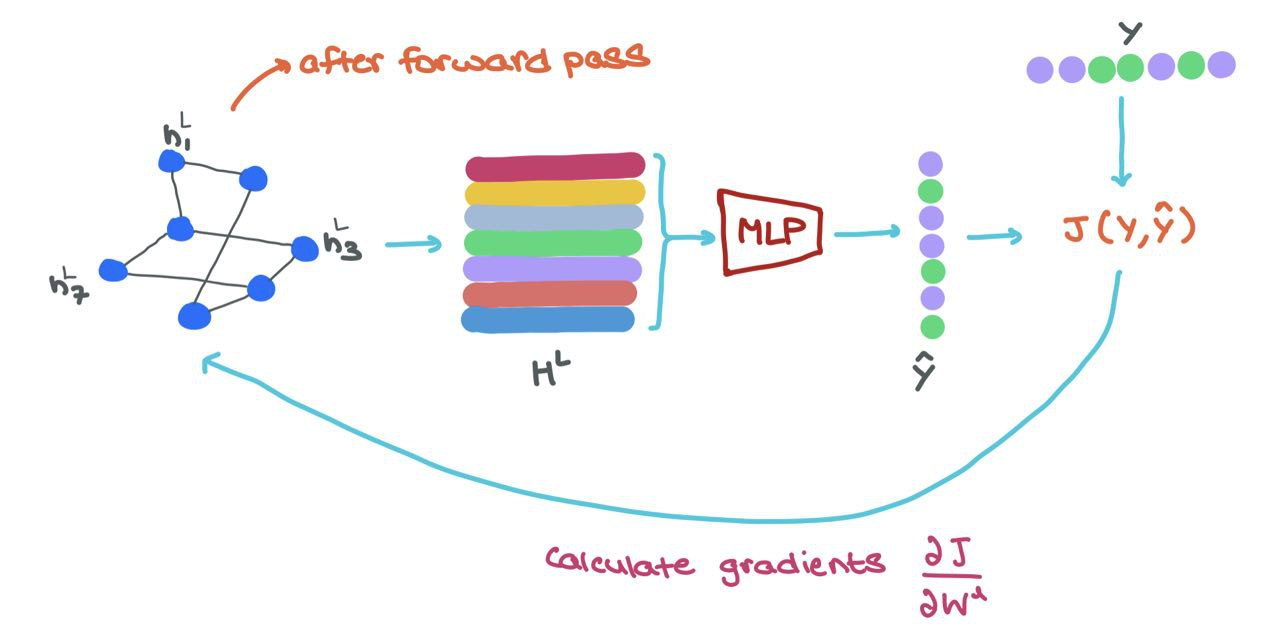 after forward pass
Y
h₁ᴸ
h₃ᴸ
h₇ᴸ
MLP
J(Y,Ŷ)
Hᴸ
Ŷ
calculate gradients ∂J/∂Wˡ